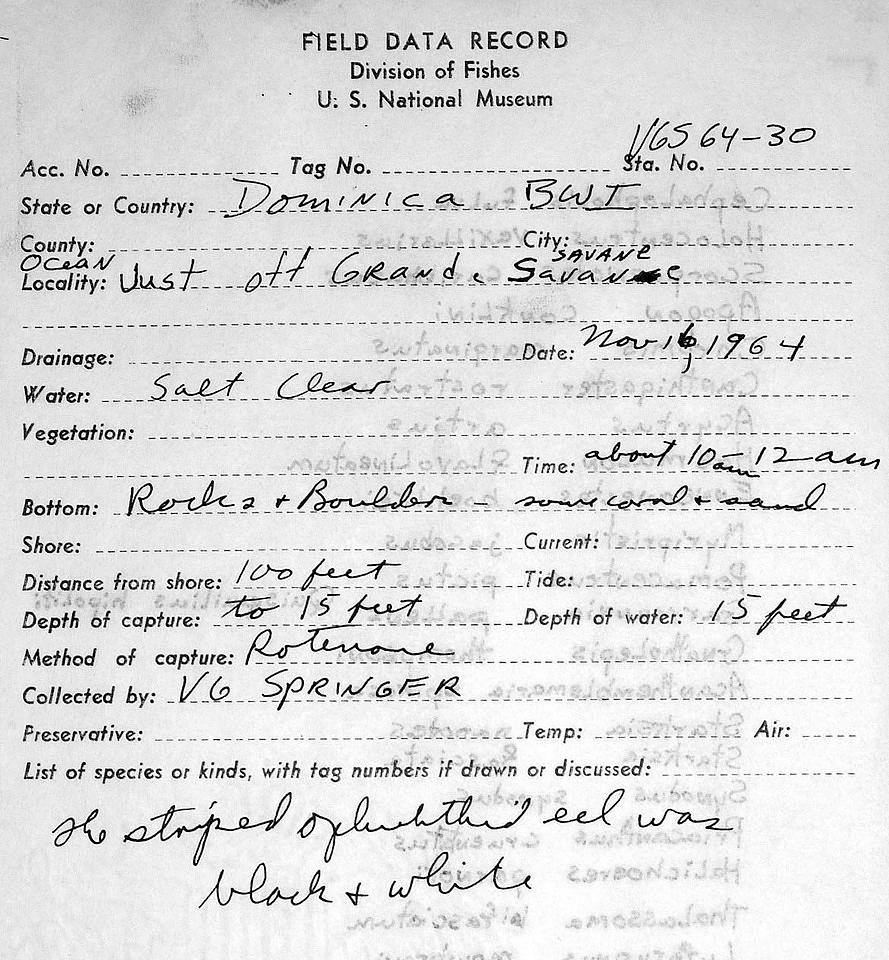 FIELD DATA RECORD
Division of Fishes
U. S. National Museum
VGS 64-30
Acc. No. Tag No. Sta. No.
State or Country: Dominica BWI
County: City:
OCEAN SAVANE
Locality: Just off Grand Savane
Drainage: Date: Nov 16, 1964
Water: Salt Clear
Vegetation:
Time: about 10am-12 am
Bottom: Rocks + Boulders - some coral + sand
Shore: Current:
Distance from shore: 100 feet Tide:
Depth of capture: to 15 feet Depth of water: 15 feet
Method of capture: Rotenone
Collected by: VG SPRINGER
Preservative: Temp: Air:
List of species or kinds, with tag numbers if drawn or discussed:
The striped ophichthid eel was
black & white